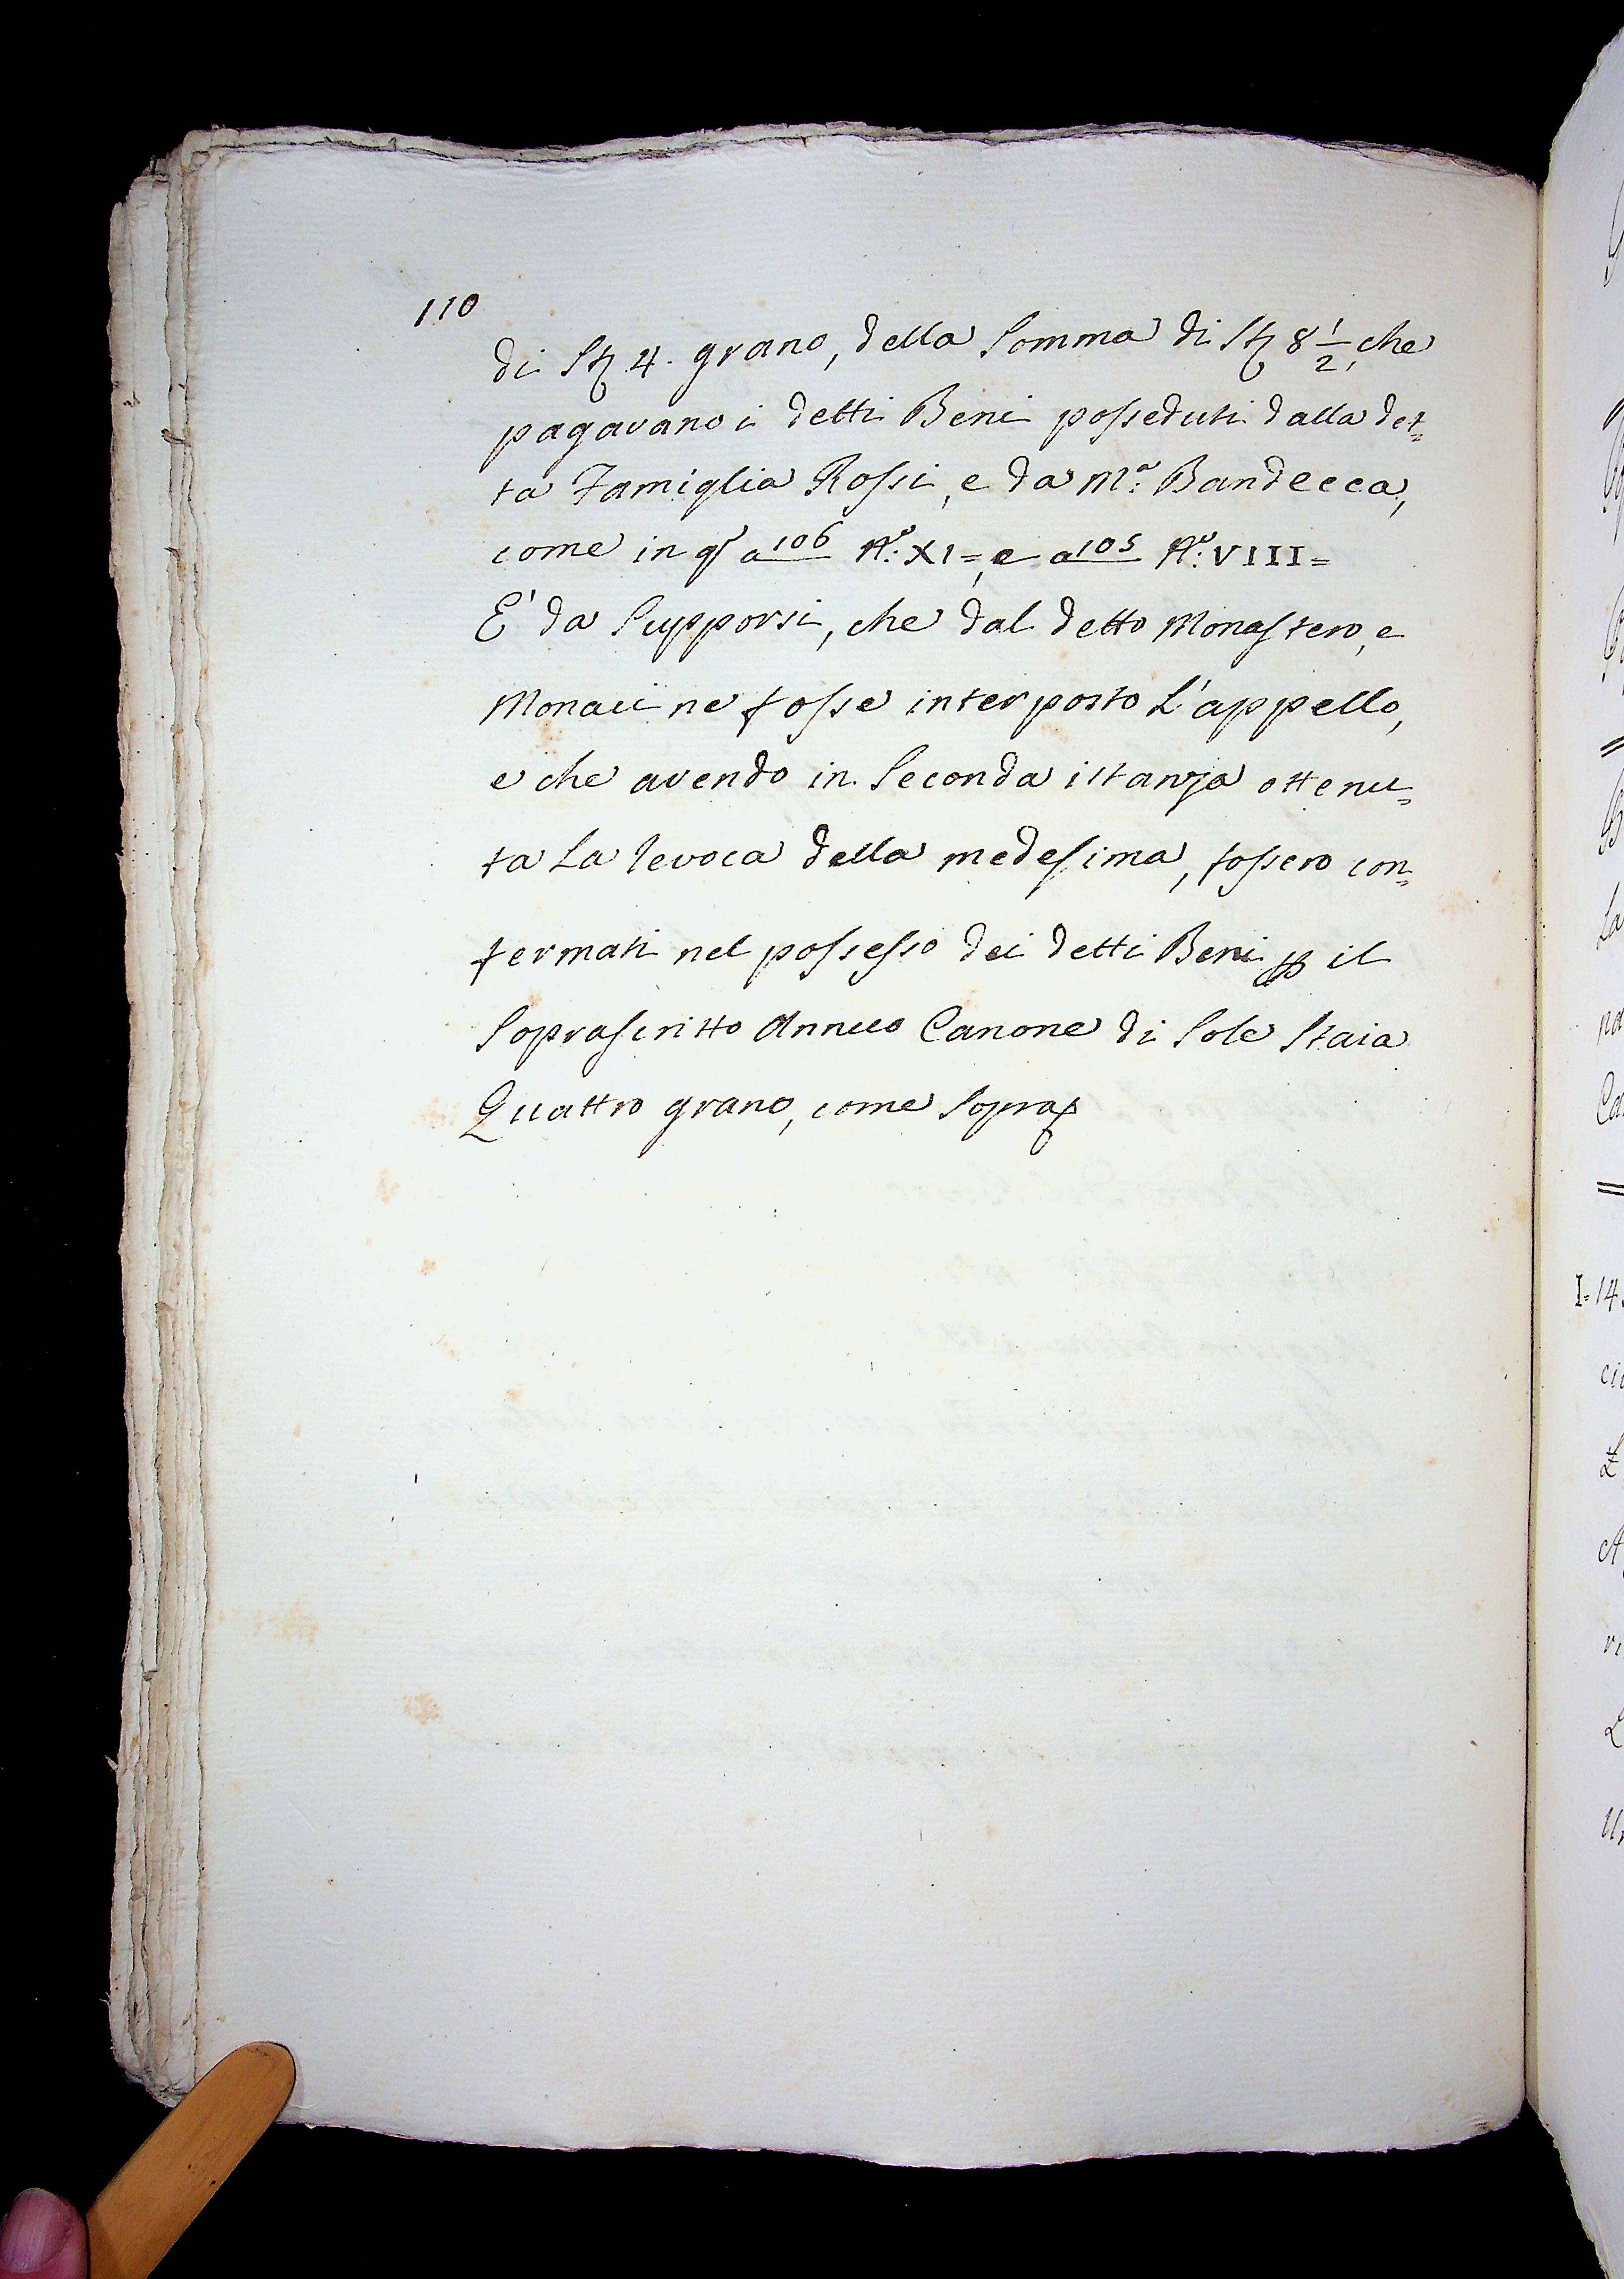 110
di St. 4. grano, della Somma di St. 8 1/2, che
pagavano i detti Beni posseduti dalla det=
ta Famiglia Rossi, e da M.ª Bandecca,
come in q.º a 106 N.º XI=, e a 105 N.º VIII=
E' da Supporsi, che dal detto Monastero, e
Monaci ne fosse interposto L'appello,
e che avendo in Seconda istanza ottenu=
ta La revoca della medesima, fossero con=
fermati nel possesso dei detti Beni p il
Soprascritto Annuo Canone di Sole Staia
Quattro grano, come Sopra
La
Ca
I=14